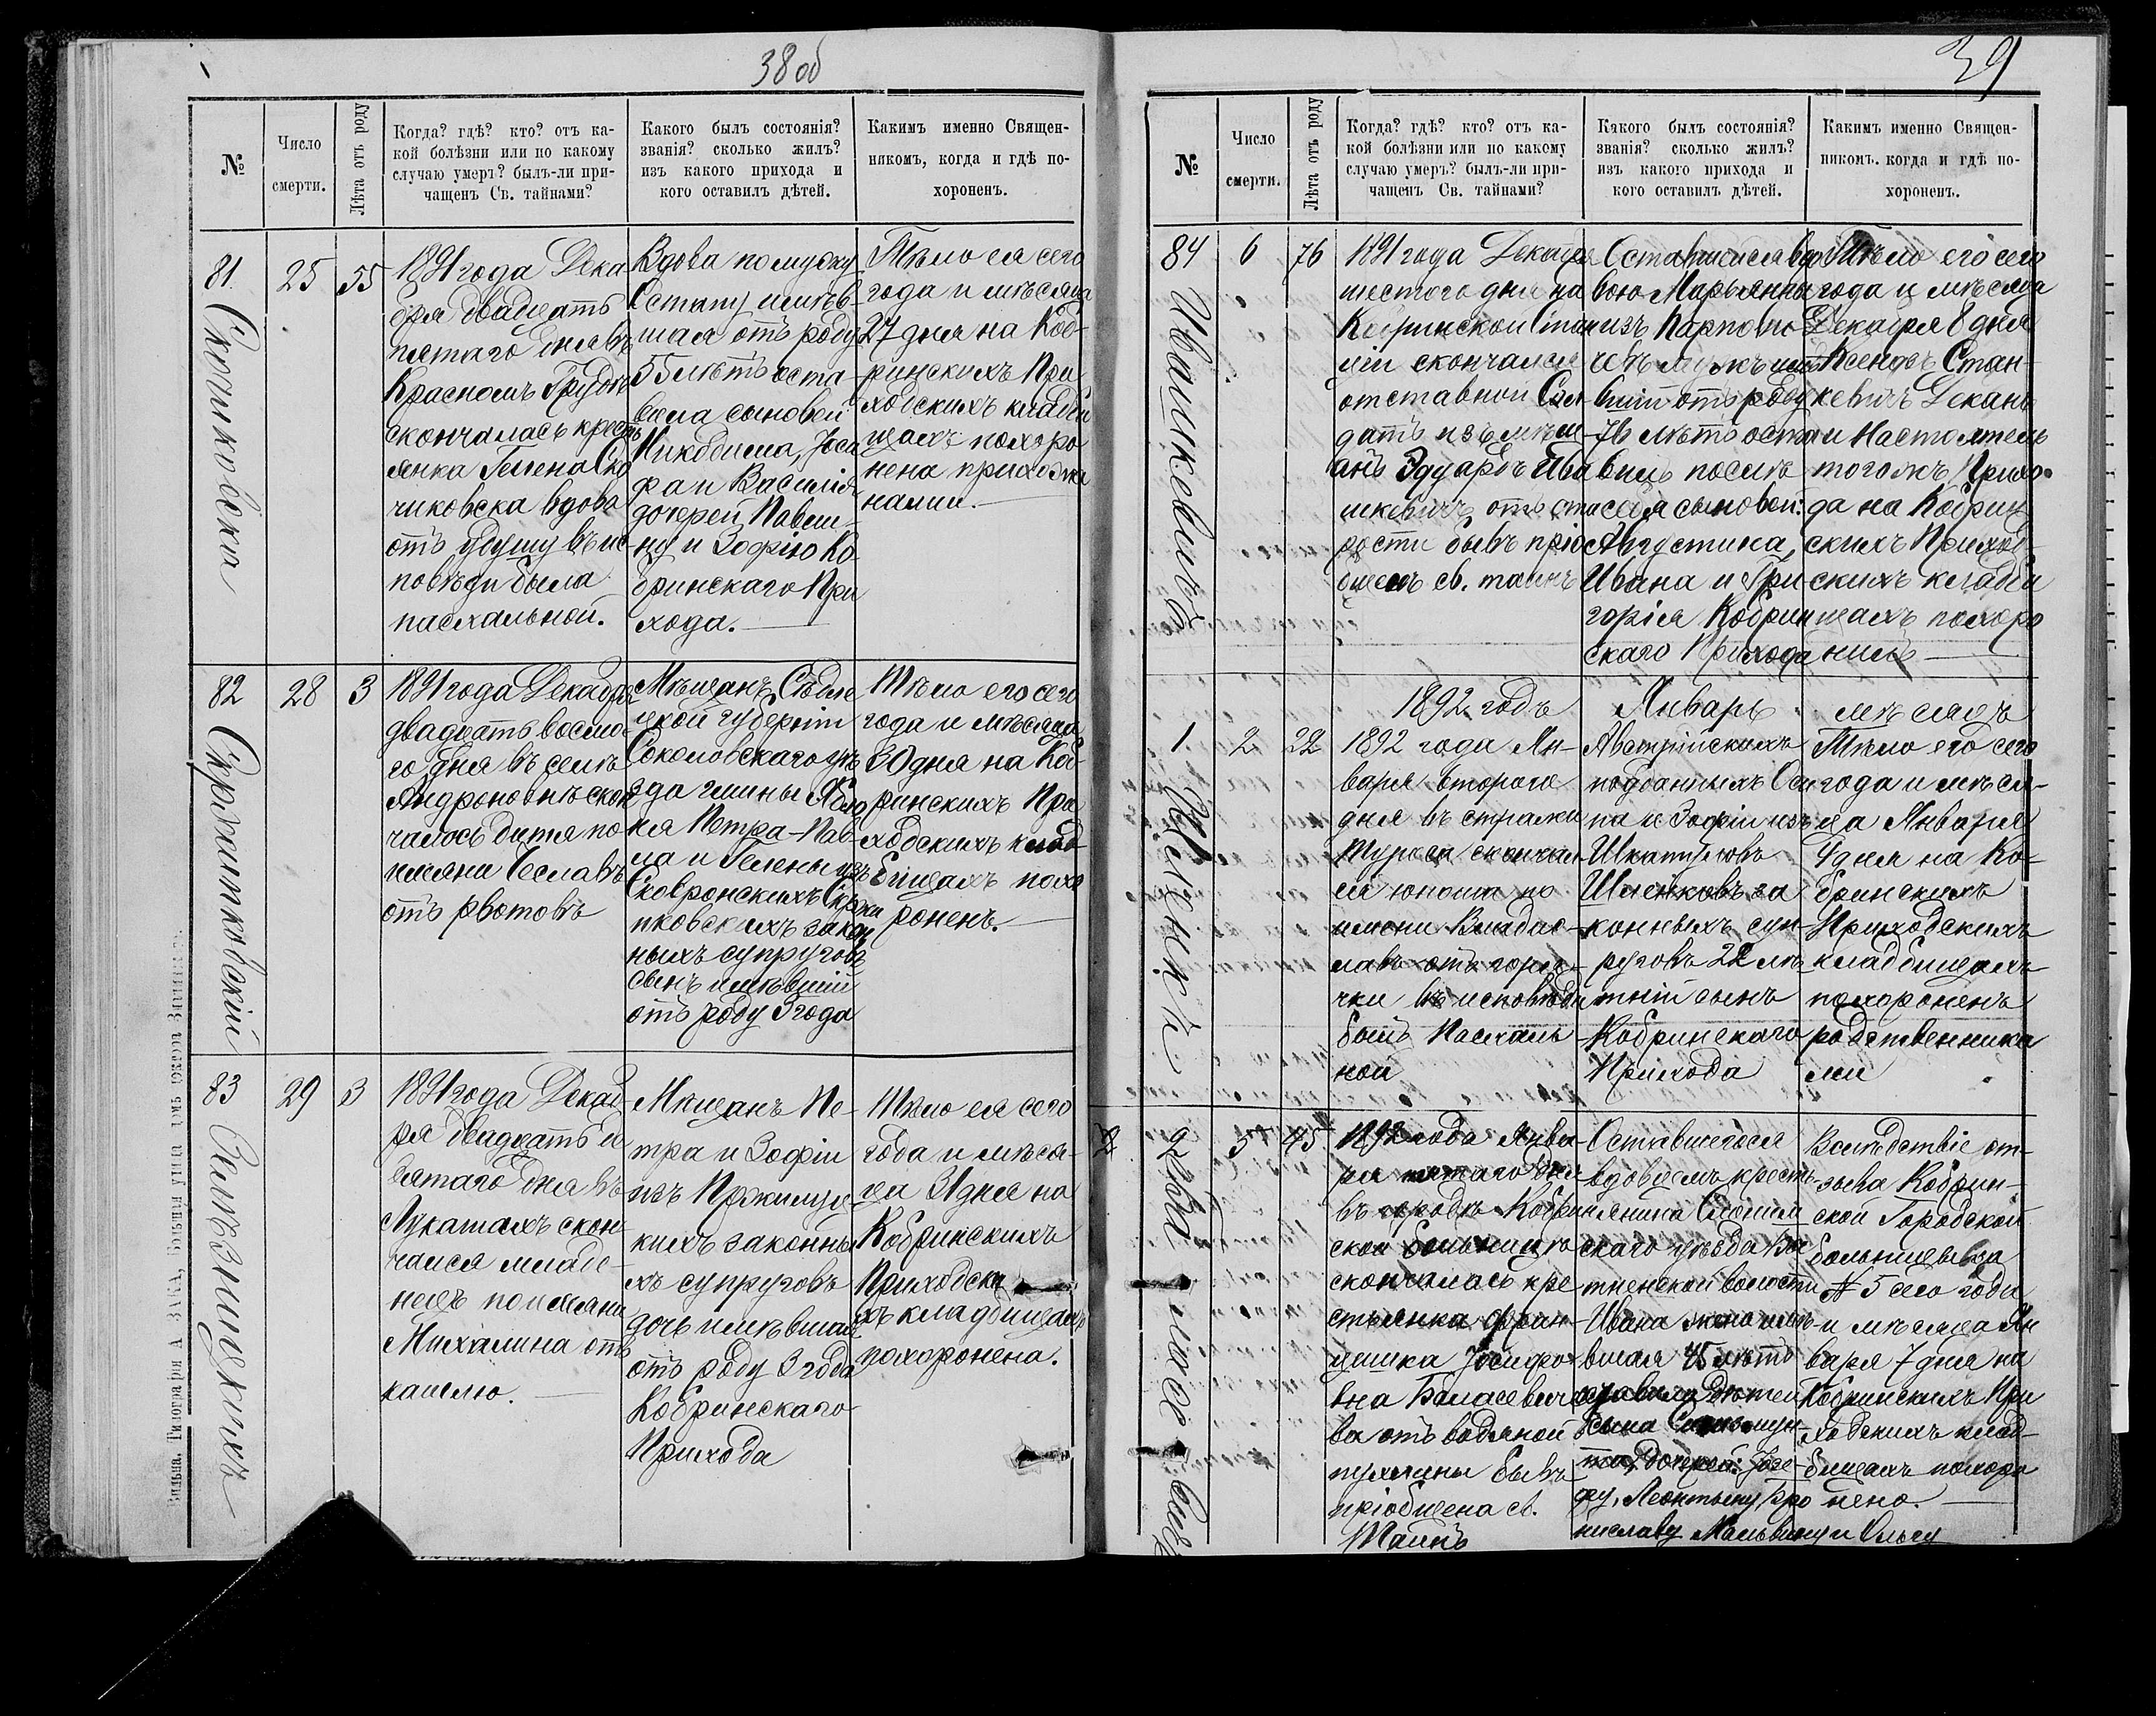 38 об
№
Число
смерти.
Лѣта отъ роду
Когда? гдѣ? кто? отъ ка-
кой болѣзни или по какому
случаю умеръ? былъ-ли при-
чащенъ Св. тайнами?
Какого былъ состоянія?
званія? сколько жилъ?
изъ какого прихода и
кого оставилъ дѣтей.
Какимъ именно Священ-
никомъ, когда и гдѣ по-
хороненъ.
81
25
55
1891 года Дека
бря двадцать
пятаго дня въ
Красномъ Грудкѣ
скончалась кресть
янка Гелена Ско
чиковска вдова
отъ удушу въ ис-
повѣди была
пасхальной.
Вдова по мужу
Остапу имѣв-
шая отъ роду
55 лѣтъ оста-
вила сыновей
Никодима, Іоси
фа и Василія
дочерей Павли-
ну и Зофію Ко
бринскаго При
хода.
Тѣло ея сего
года и мѣсяца
27 дня на Коб-
ринскихъ При
ходскихъ кладби
щахъ похоро
нена прихожа
нами.
82
28
3
1891 года Декабря
двадцать восмо-
го дня въ селѣ
Андроновѣ скон
чалось дитя по
имяни Чеславъ
отъ рвотовъ
Мѣщанъ Сѣдле
цкой губерніи
Соколовскаго уѣ
зда гмины Ябло
ня Петра-Пав-
ла и Гелены изъ
Сковронскихъ
пковскихъ закон
ныхъ супруговъ
сынъ имѣвшій
отъ роду 3 года
Тѣло его сего
года и мѣсяца
30 дня на Коб-
ринскихъ При
ходскихъ клад-
бищахъ похо
роненъ.
83
29
3
1891 года Декаб
ря двадцать де
вятаго дня въ
Лукашахъ скон-
чался младе-
нецъ по имяни
Михалина отъ
кашлю.
Мѣщанъ Пе-
тра и Зофіи
изъ
кихъ законны
хъ супруговъ
дочь имѣвшая
отъ роду 3 года
Кобринскаго
Прихода
Тѣло ея сего
года и мѣся-
ца 31 дня на
Кобринскихъ
Приходски
хъ кладбищахъ
похоронена.
39
№
Число
смерти.
Лѣта отъ роду
Когда? гдѣ? кто? отъ ка-
кой болѣзни или по какому
случаю умеръ? былъ-ли при-
чащенъ Св. тайнами?
Какого былъ состоянія?
званія? сколько жилъ?
изъ какого прихода и
кого оставилъ дѣтей.
Какимъ именно Священ-
никомъ. когда и гдѣ по-
хороненъ.
84
Ивашкевичъ
6
76
1891 года Декабря
шестого дня на
Кобринской Стан
ціи скончался
отставной Сол-
датъ изъ мѣщ-
анъ Эдуардъ Ива
шкевичъ отъ ста
рости бывъ пріо
бщенъ св. таинъ
вдо
вою Марьянны
изъ Карпови-
чевъ мужъ имѣ
вшій отъ роду
76 лѣтъ оста
вилъ послѣ
себя сыновей:
Августина,
Ивана и Гри
горія Кобрин
скаго Прихода
Тѣло его сего
года и мѣсяца
Декабря 8 дня
Ксендзъ Стан-
кевичъ Деканъ
и Настоятель
тогожъ Прихо-
да на Кобрин
скихъ Приход-
скихъ кладби
щахъ похоро
нилъ
1892 годъ Январь мѣсяцъ
1.
2
22
1892 года Ян-
варя второго
дня въ стражи
скончал-
ся юноша по
имени Владис-
лавъ отъ горя-
чки въ исповѣди
былъ Пасхаль-
ной
Австрійскихъ
подданныхъ Оси
па и Зофіи изъ
за
конныхъ суп-
руговъ 22 лѣ
тній сынъ
Кобринскаго
Прихода
Тѣло его сего
года и мѣся-
ца Января
4 дня на Ко-
бринскихъ
Приходскихъ
кладбищахъ
похороненъ
родственника
ми
2
5
45
1892 года Янва
ря пятаго дня
въ городѣ Кобрин
ской больницѣ
скончалась кре
стьянка Фран-
цишка Іосифо-
вна
ва отъ водяной о
пухлины бывъ
пріобщена св.
Таинъ
Оставшегося
вдовцемъ кресть
янина Слоним
скаго уѣзда
волости
Ивана жена имѣ
вшая 45 лѣтъ
оставила дѣтей
сына
дочерей: Іозе-
фу, Леонтыну, Бро
ниславу Мальвину и Ольгу
Вслѣдствіе от-
зыва Кобрин-
ской Городской
больницы за
№ 5 сего года
и мѣсяца Ян
варя 7 дня на
Кобринскихъ При
ходскихъ клад-
бищахъ похоро
нена.